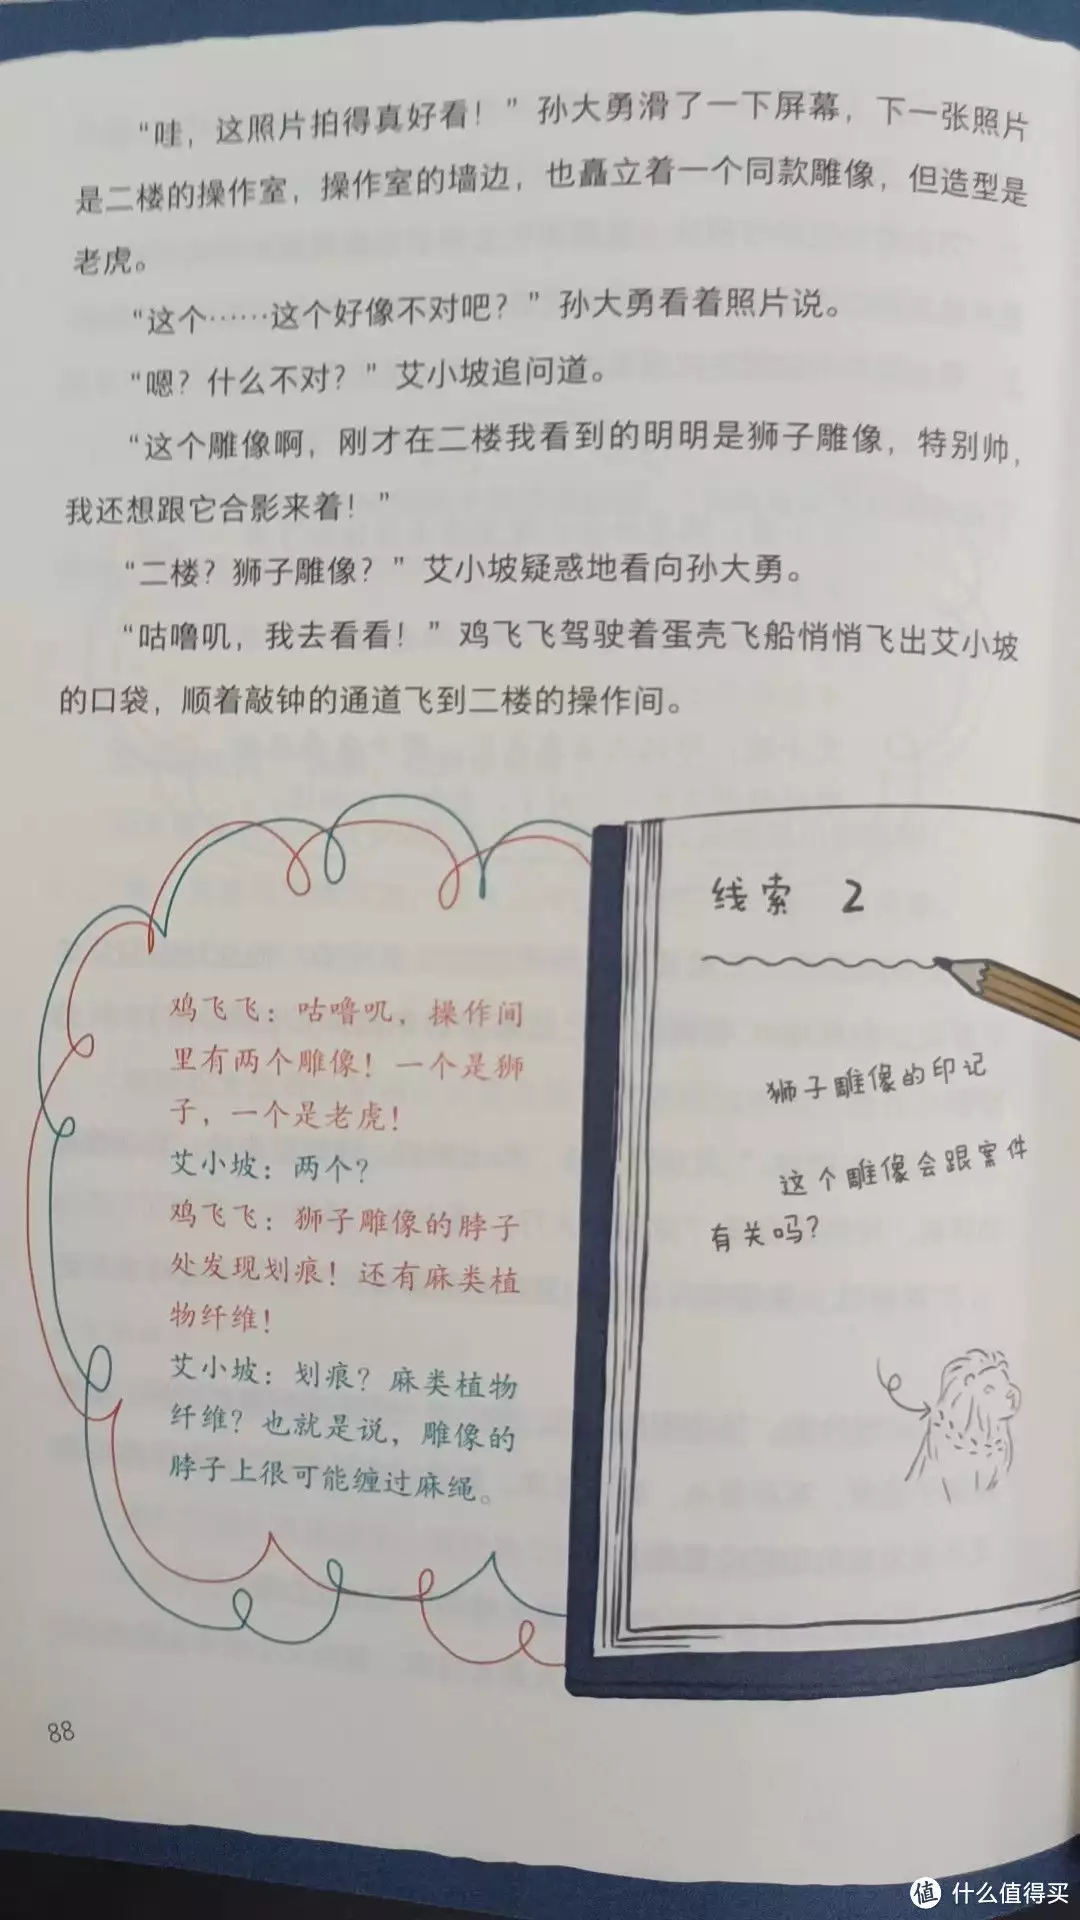 “哇，这照片拍得真好看！”孙大勇滑了一下屏幕，下一张照片
是二楼的操作室，操作室的墙边，也矗立着一个同款雕像，但造型是
老虎。
“这个……这个好像不对吧？”孙大勇看着照片说。
“嗯？什么不对？”艾小坡追问道。
“这个雕像啊，刚才在二楼我看到的明明是狮子雕像，特别帅，
我还想跟它合影来着！”
“二楼？狮子雕像？”艾小坡疑惑地看向孙大勇。
“咕噜叽，我去看看！”鸡飞飞驾驶着蛋壳飞船悄悄飞出艾小坡
的口袋，顺着敲钟的通道飞到二楼的操作间。
鸡飞飞：咕噜叽，操作间
里有两个雕像！一个是狮
子，一个是老虎！
艾小坡：两个？
鸡飞飞：狮子雕像的脖子
处发现划痕！还有麻类植
物纤维！
艾小坡：划痕？麻类植物
纤维？也就是说，雕像的
脖子上很可能缠过麻绳。
线索 2
狮子雕像的印记
这个雕像会跟案件
有关吗？
88
值 什么值得买